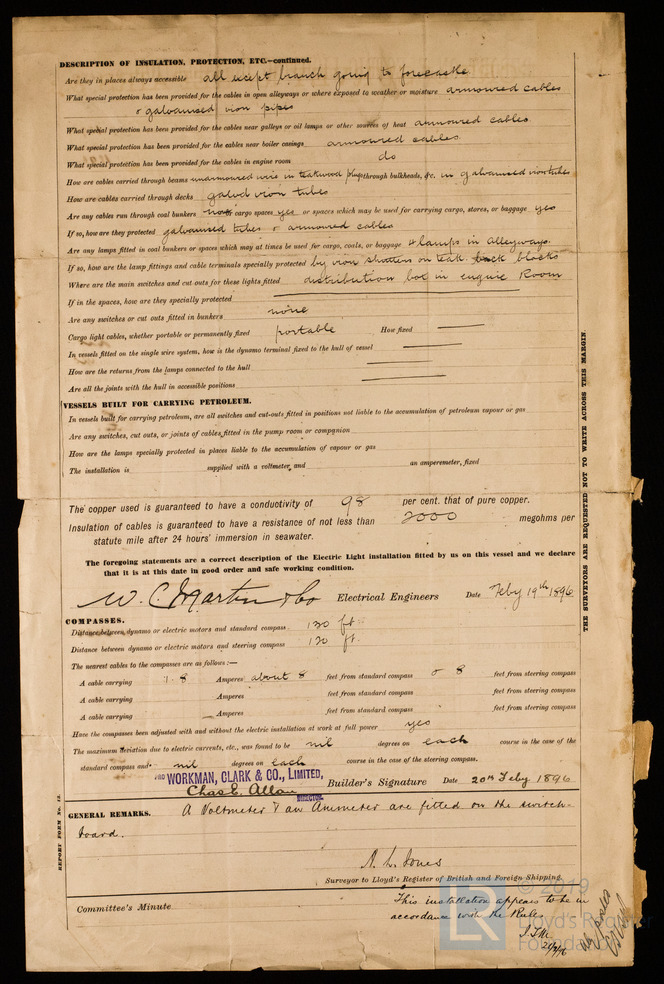 DESCRIPTION OF INSULATION, PROTECTION, ETC.—continued.
Are they in places always accessible all except branch going to forecastle
What special protection has been provided for the cables in open alleyways or where exposed to weather or moisture armoured cables
& galvanised iron pipes
What special protection has been provided for the cables near galleys or oil lamps or other sources of heat armoured cables
What special protection has been provided for the cables near boiler casings armoured cables
What special protection has been provided for the cables in engine room do
How are cables carried through beams unarmoured wire in teakwood plugs through bulkheads, &c. in galvanised iron tubes
How are cables carried through decks galvd iron tubes
Are any cables run through coal bunkers or cargo spaces yes or spaces which may be used for carrying cargo, stores, or baggage yes
If so, how are they protected galvanised tubes & armoured cables
Are any lamps fitted in coal bunkers or spaces which may at times be used for cargo, coals, or baggage lamps in alleyways
If so, how are the lamp fittings and cable terminals specially protected by iron shutters on teak blocks
Where are the main switches and cut outs for these lights fitted distribution box in engine Room
If in the spaces, how are they specially protected
Are any switches or cut outs fitted in bunkers none
Cargo light cables, whether portable or permanently fixed portable How fixed
In vessels fitted on the single wire system, how is the dynamo terminal fixed to the hull of vessel
How are the returns from the lamps connected to the hull
Are all the joints with the hull in accessible positions
VESSELS BUILT FOR CARRYING PETROLEUM.
In vessels built for carrying petroleum, are all switches and cut-outs fitted in positions not liable to the accumulation of petroleum vapour or gas
Are any switches, cut outs, or joints of cables fitted in the pump room or companion
How are the lamps specially protected in places liable to the accumulation of vapour or gas
The installation is supplied with a voltmeter, and an amperemeter, fixed
The copper used is guaranteed to have a conductivity of 98 per cent. that of pure copper.
Insulation of cables is guaranteed to have a resistance of not less than 2000 megohms per
statute mile after 24 hours' immersion in seawater.
The foregoing statements are a correct description of the Electric Light installation fitted by us on this vessel and we declare
that it is at this date in good order and safe working condition.
W. C. Martin & Co Electrical Engineers Date Feby 19th 1896
COMPASSES.
Distance between dynamo or electric motors and standard compass 120 ft.
Distance between dynamo or electric motors and steering compass 120 ft.
The nearest cables to the compasses are as follows:—
A cable carrying 7.8 Amperes about 8 feet from standard compass & 8 feet from steering compass
A cable carrying Amperes feet from standard compass feet from steering compass
A cable carrying Amperes feet from standard compass feet from steering compass
Have the compasses been adjusted with and without the electric installation at work at full power yes
The maximum deviation due to electric currents, etc., was found to be nil degrees on each course in the case of the
standard compass and nil degrees on each course in the case of the steering compass.
PRO WORKMAN, CLARK & CO., LIMITED,
Chas E. Allan Builder's Signature Date 20th Feby 1896
DIRECTOR
GENERAL REMARKS. A Voltmeter & an Ammeter are fitted on the switch-
board.
A. L. Jones
Surveyor to Lloyd's Register of British and Foreign Shipping.
Committee's Minute
This installation appears to be in
accordance with the Rules
REPORT FORM No. 13.
THE SURVEYORS ARE REQUESTED NOT TO WRITE ACROSS THIS MARGIN.
LR
© 2019
Lloyd's Register
Foundation